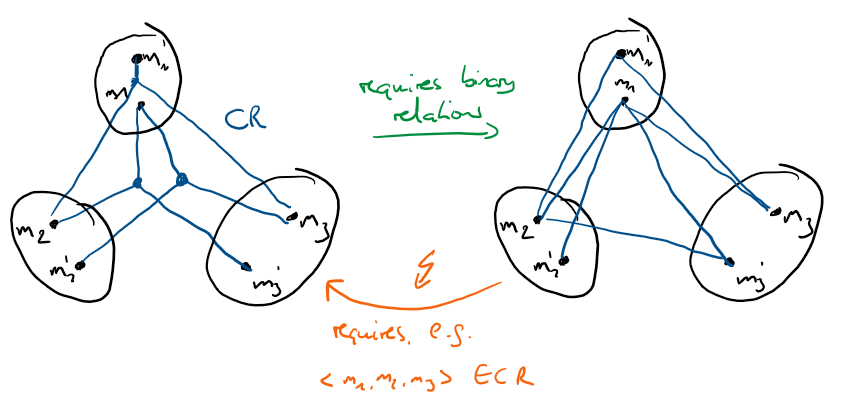 m₁'
m₁
CR
m₂
m₂'
m₃
m₃'
requires binary
relations
m₁'
m₁
m₂
m₂'
m₃
m₃'
requires, e.g.
<m₁, m₂, m₃> ECR